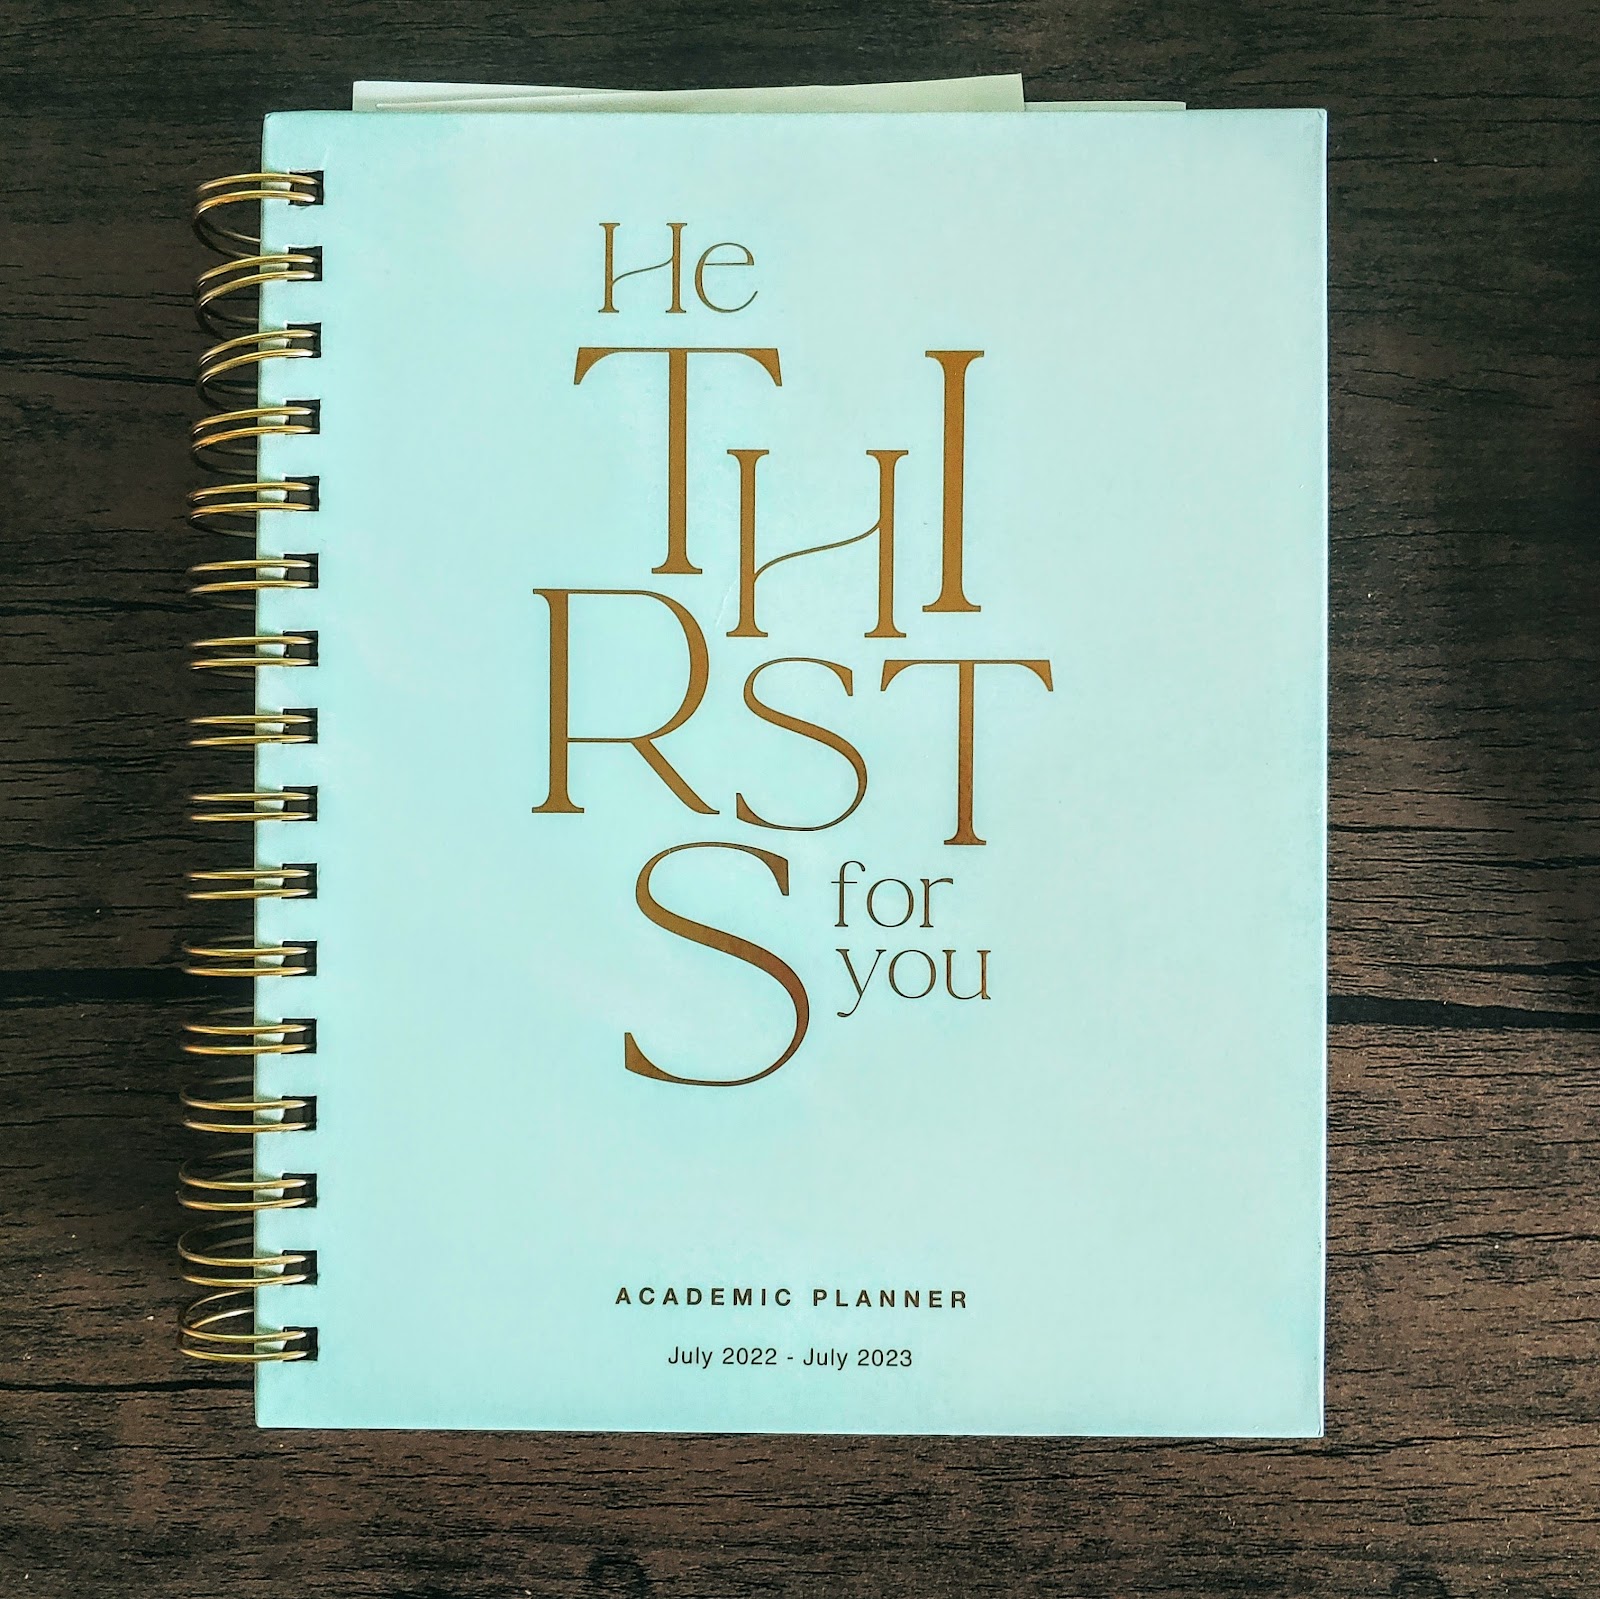 He
THI
RST
S for
you
ACADEMIC PLANNER
July 2022 - July 2023